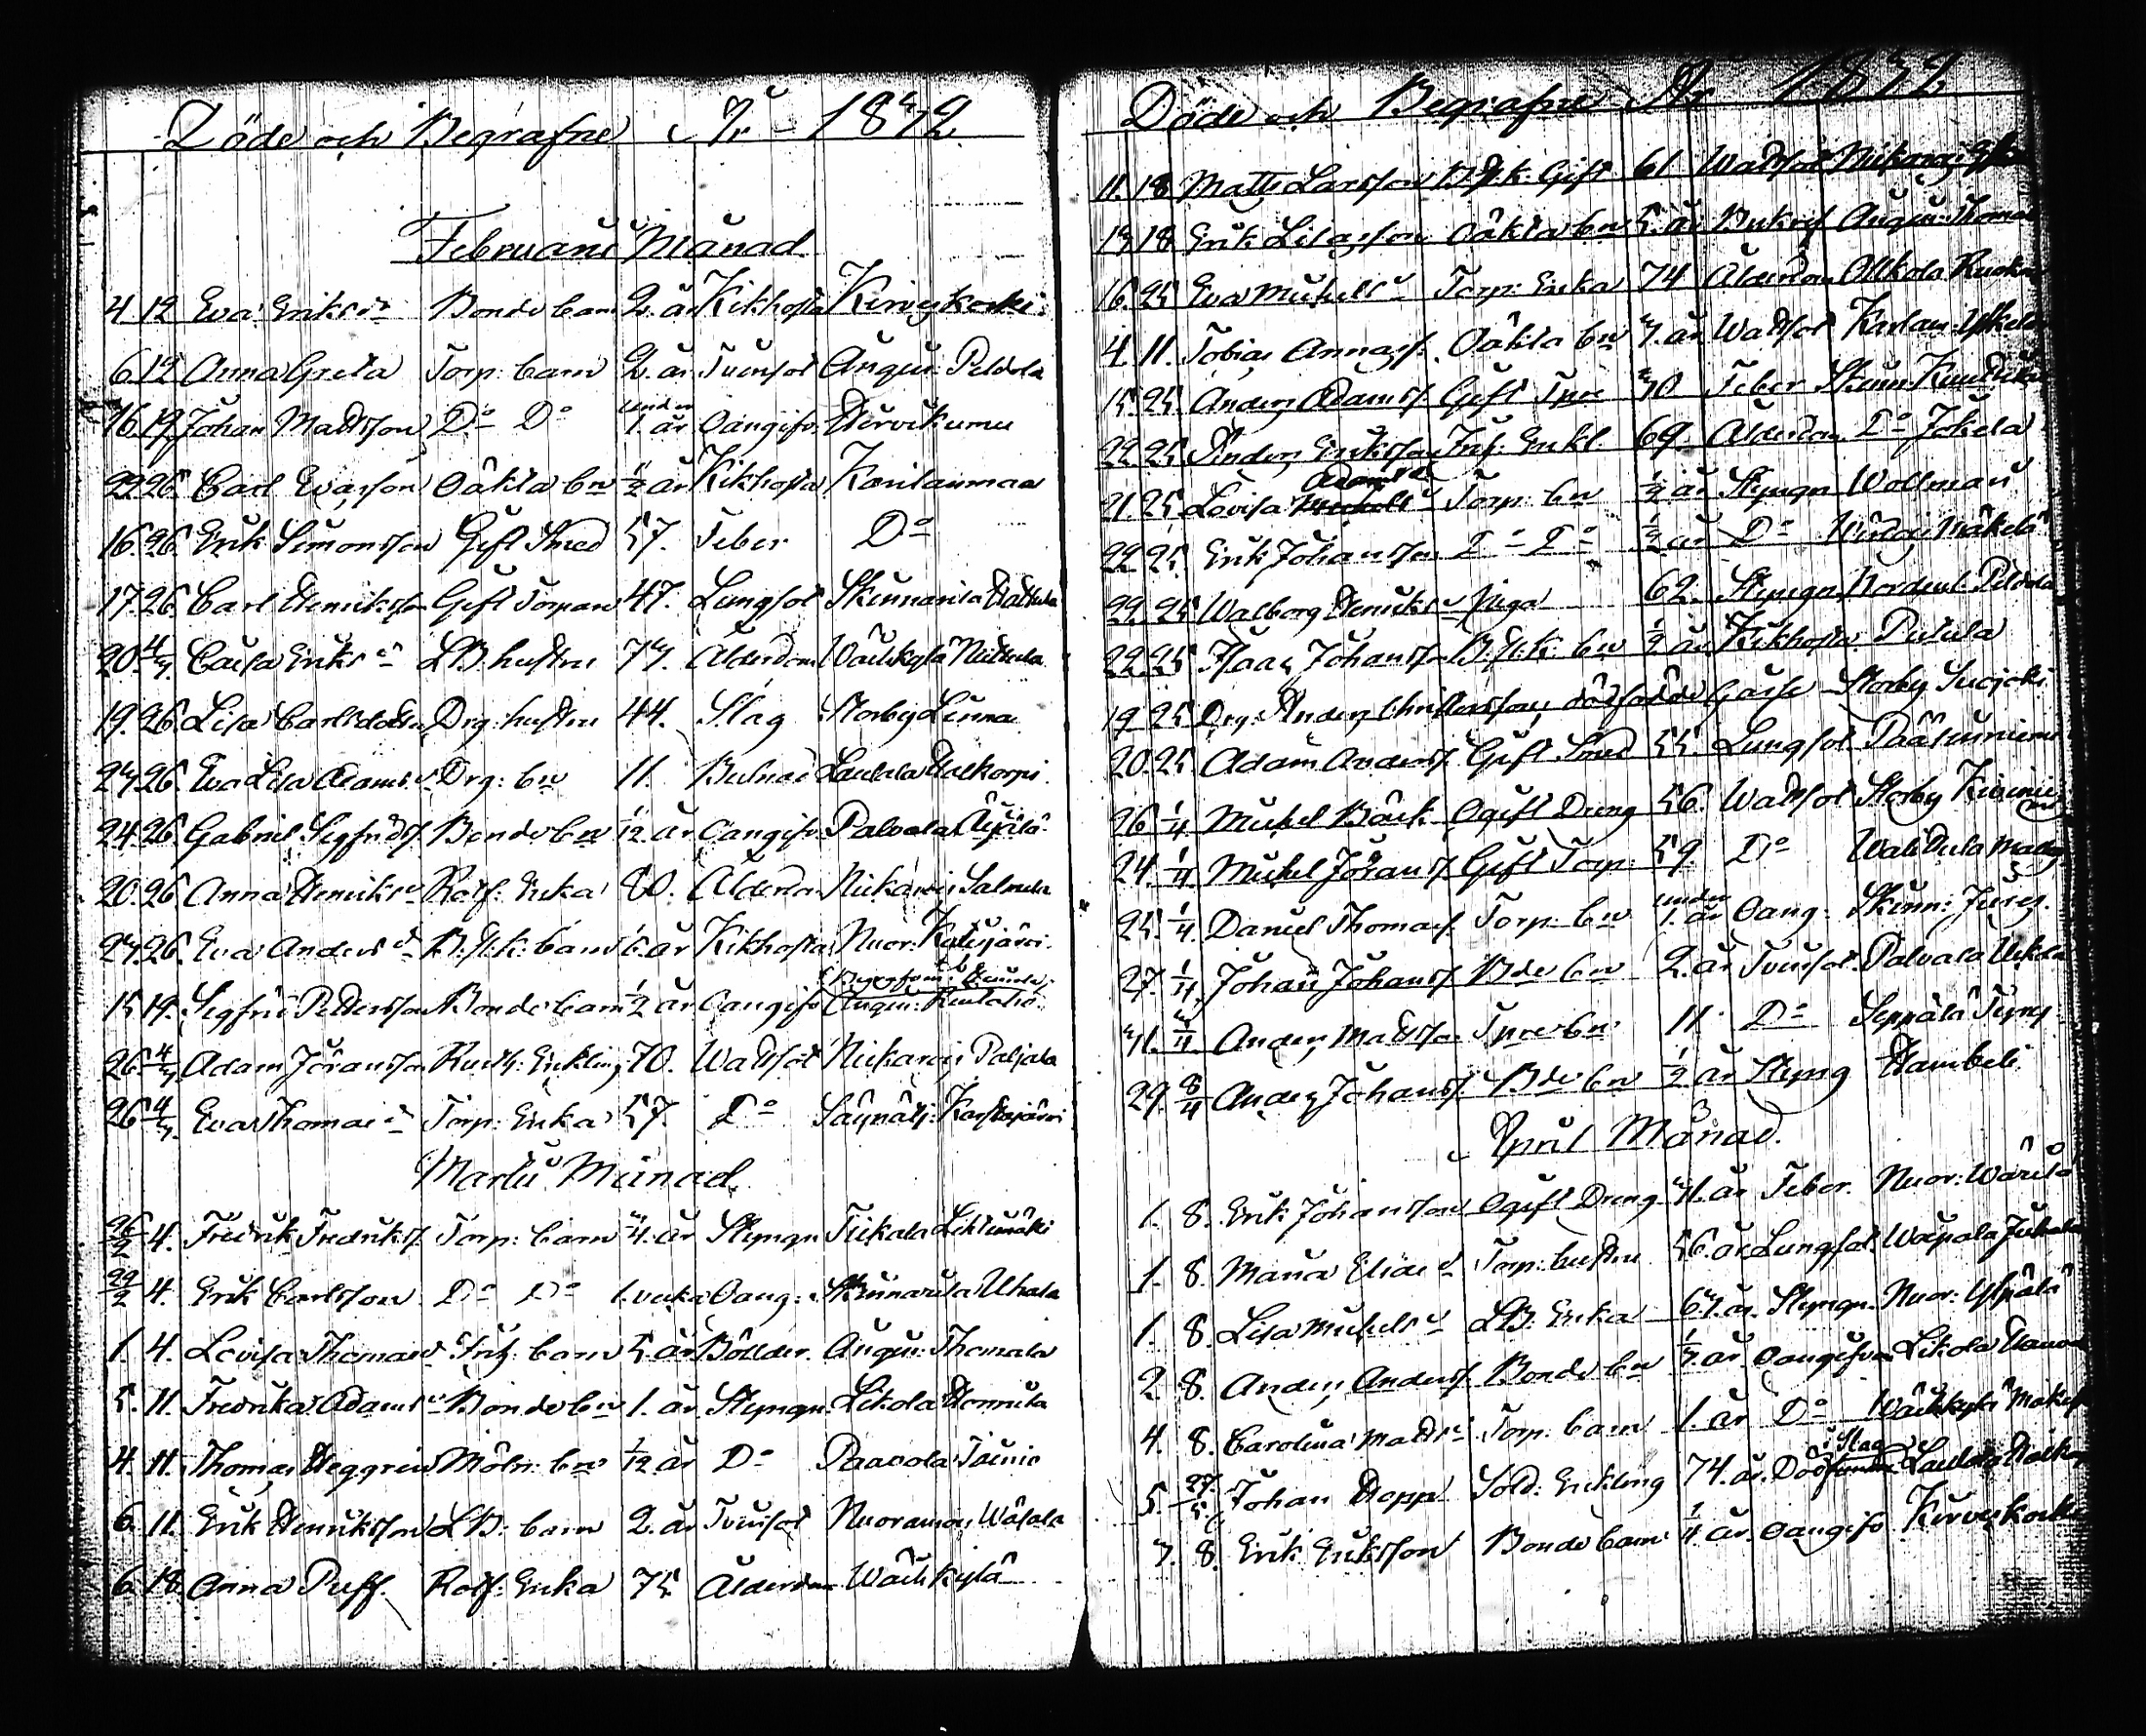 Döde och Begrafne År 1832
Februarii Månad
4. 12 Eva Eriks dr Bonde barn 2. år Kikhosta Kirveskoski
6. 12 Anna Greta Torp: barn 2. år Tvinsot Angu: Peldola
16. 19. Johan Mattsson Do Do under 1. år Oangifv. Hirvikumu
22. 26. Carl Evasson Oäkta bn 1/2 år Kikhosta Karilanmaa
16. 26. Erik Simonsson Gift Smed 57. Feber Do
17. 26. Carl Henriksson Gift Torpare 47. Lungsot Skinnarila
20. 4/3. Caisa Eriks dr LB. hustru 73. Ålderdom Wäihkylä
19. 26. Lisa Carlsdotter Drg: hustru 44. Slag Storby Linna
23. 26. Eva Lisa Adams dr Drg: bn 11. Laukala Halkorpi
24. 26. Gabriel Segfridss. Bonde bn 1/12 år Oangifv. Palvala
20. 26. Anna Henriks dr Rotf. Enka 80. Ålderdom Nickarois Salmela
23. 26. Eva Anders dr B. barn 6. år Kikhosta Nuor: Katisjärvi
15. 19. Segfrid Pettersson Bonde barn 1/2 år Oangifv Angu: Rentalio
26. 4/3. Adam Jöransson Enkling 70. Wattsot Nickarois Paljala
26. 4/3. Eva Thomae dr Torp: Enka 57. Do Säynätj: Karstajärvi
Martii Månad
26/2 4. Fredrik Fredrikss. Torp: barn 3/4. år Styngn Tiikala
29/2 4. Erik Carlsson Do Do 1. vecka Oang: Skinnarila Uhala
1. 4. Lovisa Thomae dr barn 5. år Bölder Angu: Thomala
5. 11. Fredrika Adams dr Bonde bn 1. år Styngn Likola Honnila
4. 11. Thomas Heggren Möln: bn 1/12 år Do Paavola Toinio
6. 11. Erik Henriksson LB: barn 2. år Tvinsot Nuoramois Wäsala
6. 18. Anna Puff. Rotf: Enka 75 Ålderdom Wäihkylä
Döde och Begrafne År 1832
11. 18 Matts Larsson Gift 61 Wattsot Nickarois
13. 18 Erik Lisasson Oäkta bn 5. år Angu: Thomala
16. 25 Eva Michels dr Torp: Enka 74 Ålderdom Ollkola
4. 11. Tobias Annass. Oäkta bn 3. år Wattsot
15. 25. Anders Adamss. Gift Tpre 30 Feber Skinn
22. 25. Anders Eriksson Enkl. 69. Ålderdom Do Jokela
21. 25. Lovisa Adams dr Torp: bn 1/2 år Styngn Wollman
22 25. Erik Johansson Do Do 1/2 år Do Mäkelä
22. 25 Walborg Henriks dr Piga 62. Styngn Nordenl. Peldola
22. 25 Isaac Johansson bn 1/2 år Kikhosta
19 25 Drg: Anders Christerssons dödfödde Gosse Storby Sicjoki
20. 25 Adam Anderss. Gift Smed 55. Lungsot Pääskyniemi
26 1/4 Michel Bäck Ogift Dreng 56. Wattsot Storby
24. 1/4 Michel Jöranss. Gift Torp: 59 Do
25. 1/4 Daniel Thomass. Torp: bn under 1. år Oang: Skinn:
27. 1/4 Johan Johanss. Bde bn 2. år Tvinsot Palvala
31. 3/4 Anders Mattsson Tpre bn 11. Do Seppälä
29. 8/4 Anders Johanss. Bde bn 1/2 år Styng Hambeli
April Månad.
1. 8. Erik Johansson Ogift Dreng 31. år Feber. Nuor: Wärilä
1. 8. Maria Elia dr Torp: hustru 56. år Lungsot
1. 8. Lisa Michels dr LB: Enka 63. år. Styngn. Nuor:
2 8. Anders Anderss. Bonde bn 1/3. år Oangifven Likola
4. 8. Carolina Matts dr Torp: barn 1. år Do Wäihkylä
5. 27/5 Johan Hopp Sold: Enkling 74. år. i Slag
7. 8. Erik Eriksson Bonde barn 1/4 år Oangifv Kirveskoski